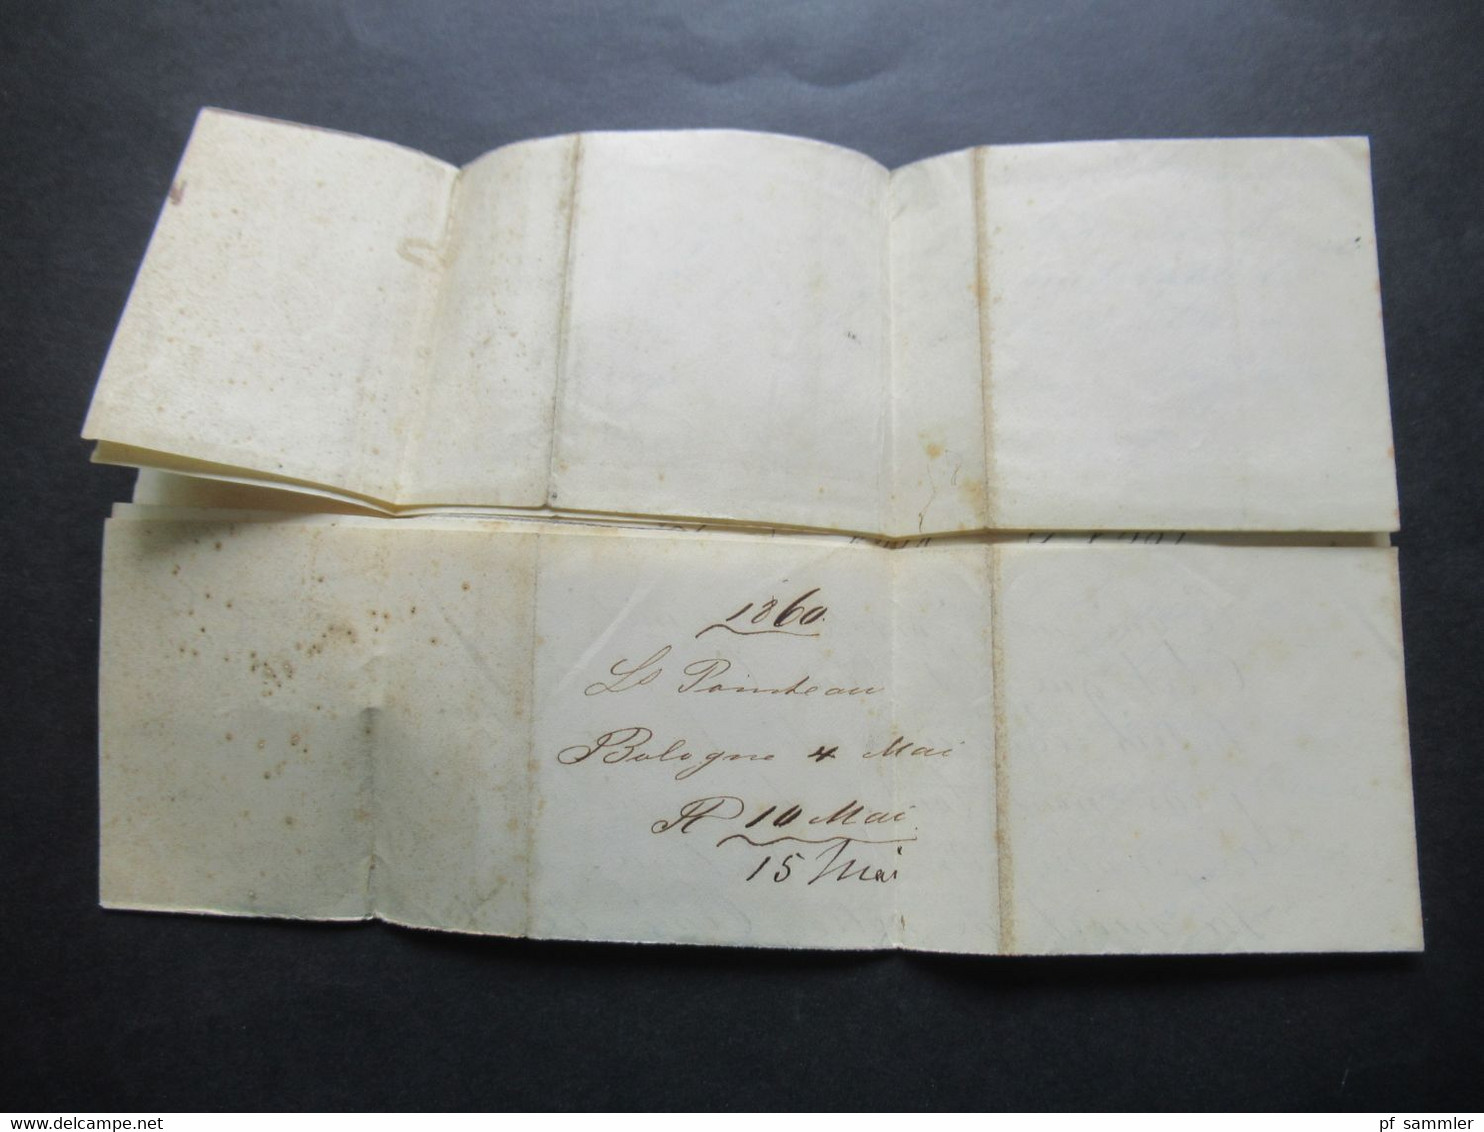 1860.
Ls Pointeau
Bologne 4 Mai
R 10 Mai
15 Mai
www.delcampe.net
pf_sammler